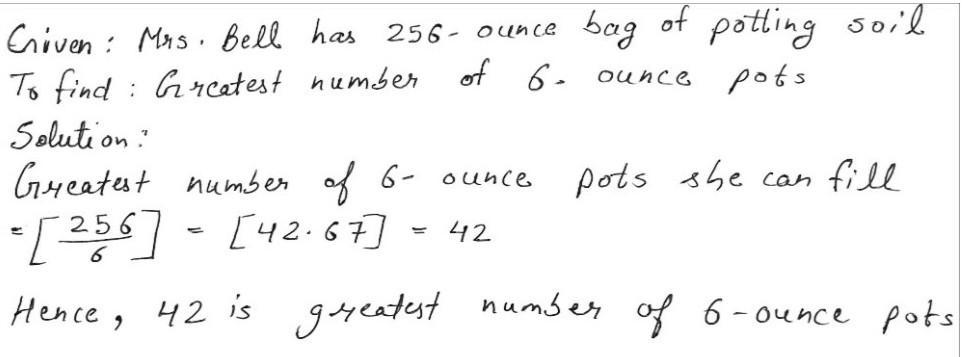 Given : Mrs. Bell has 256- ounce bag of potting soil
To find : Greatest number of 6- ounce pots
Solution :
Greatest number of 6- ounce pots she can fill
= [256/6] = [42.67] = 42
Hence, 42 is greatest number of 6-ounce pots